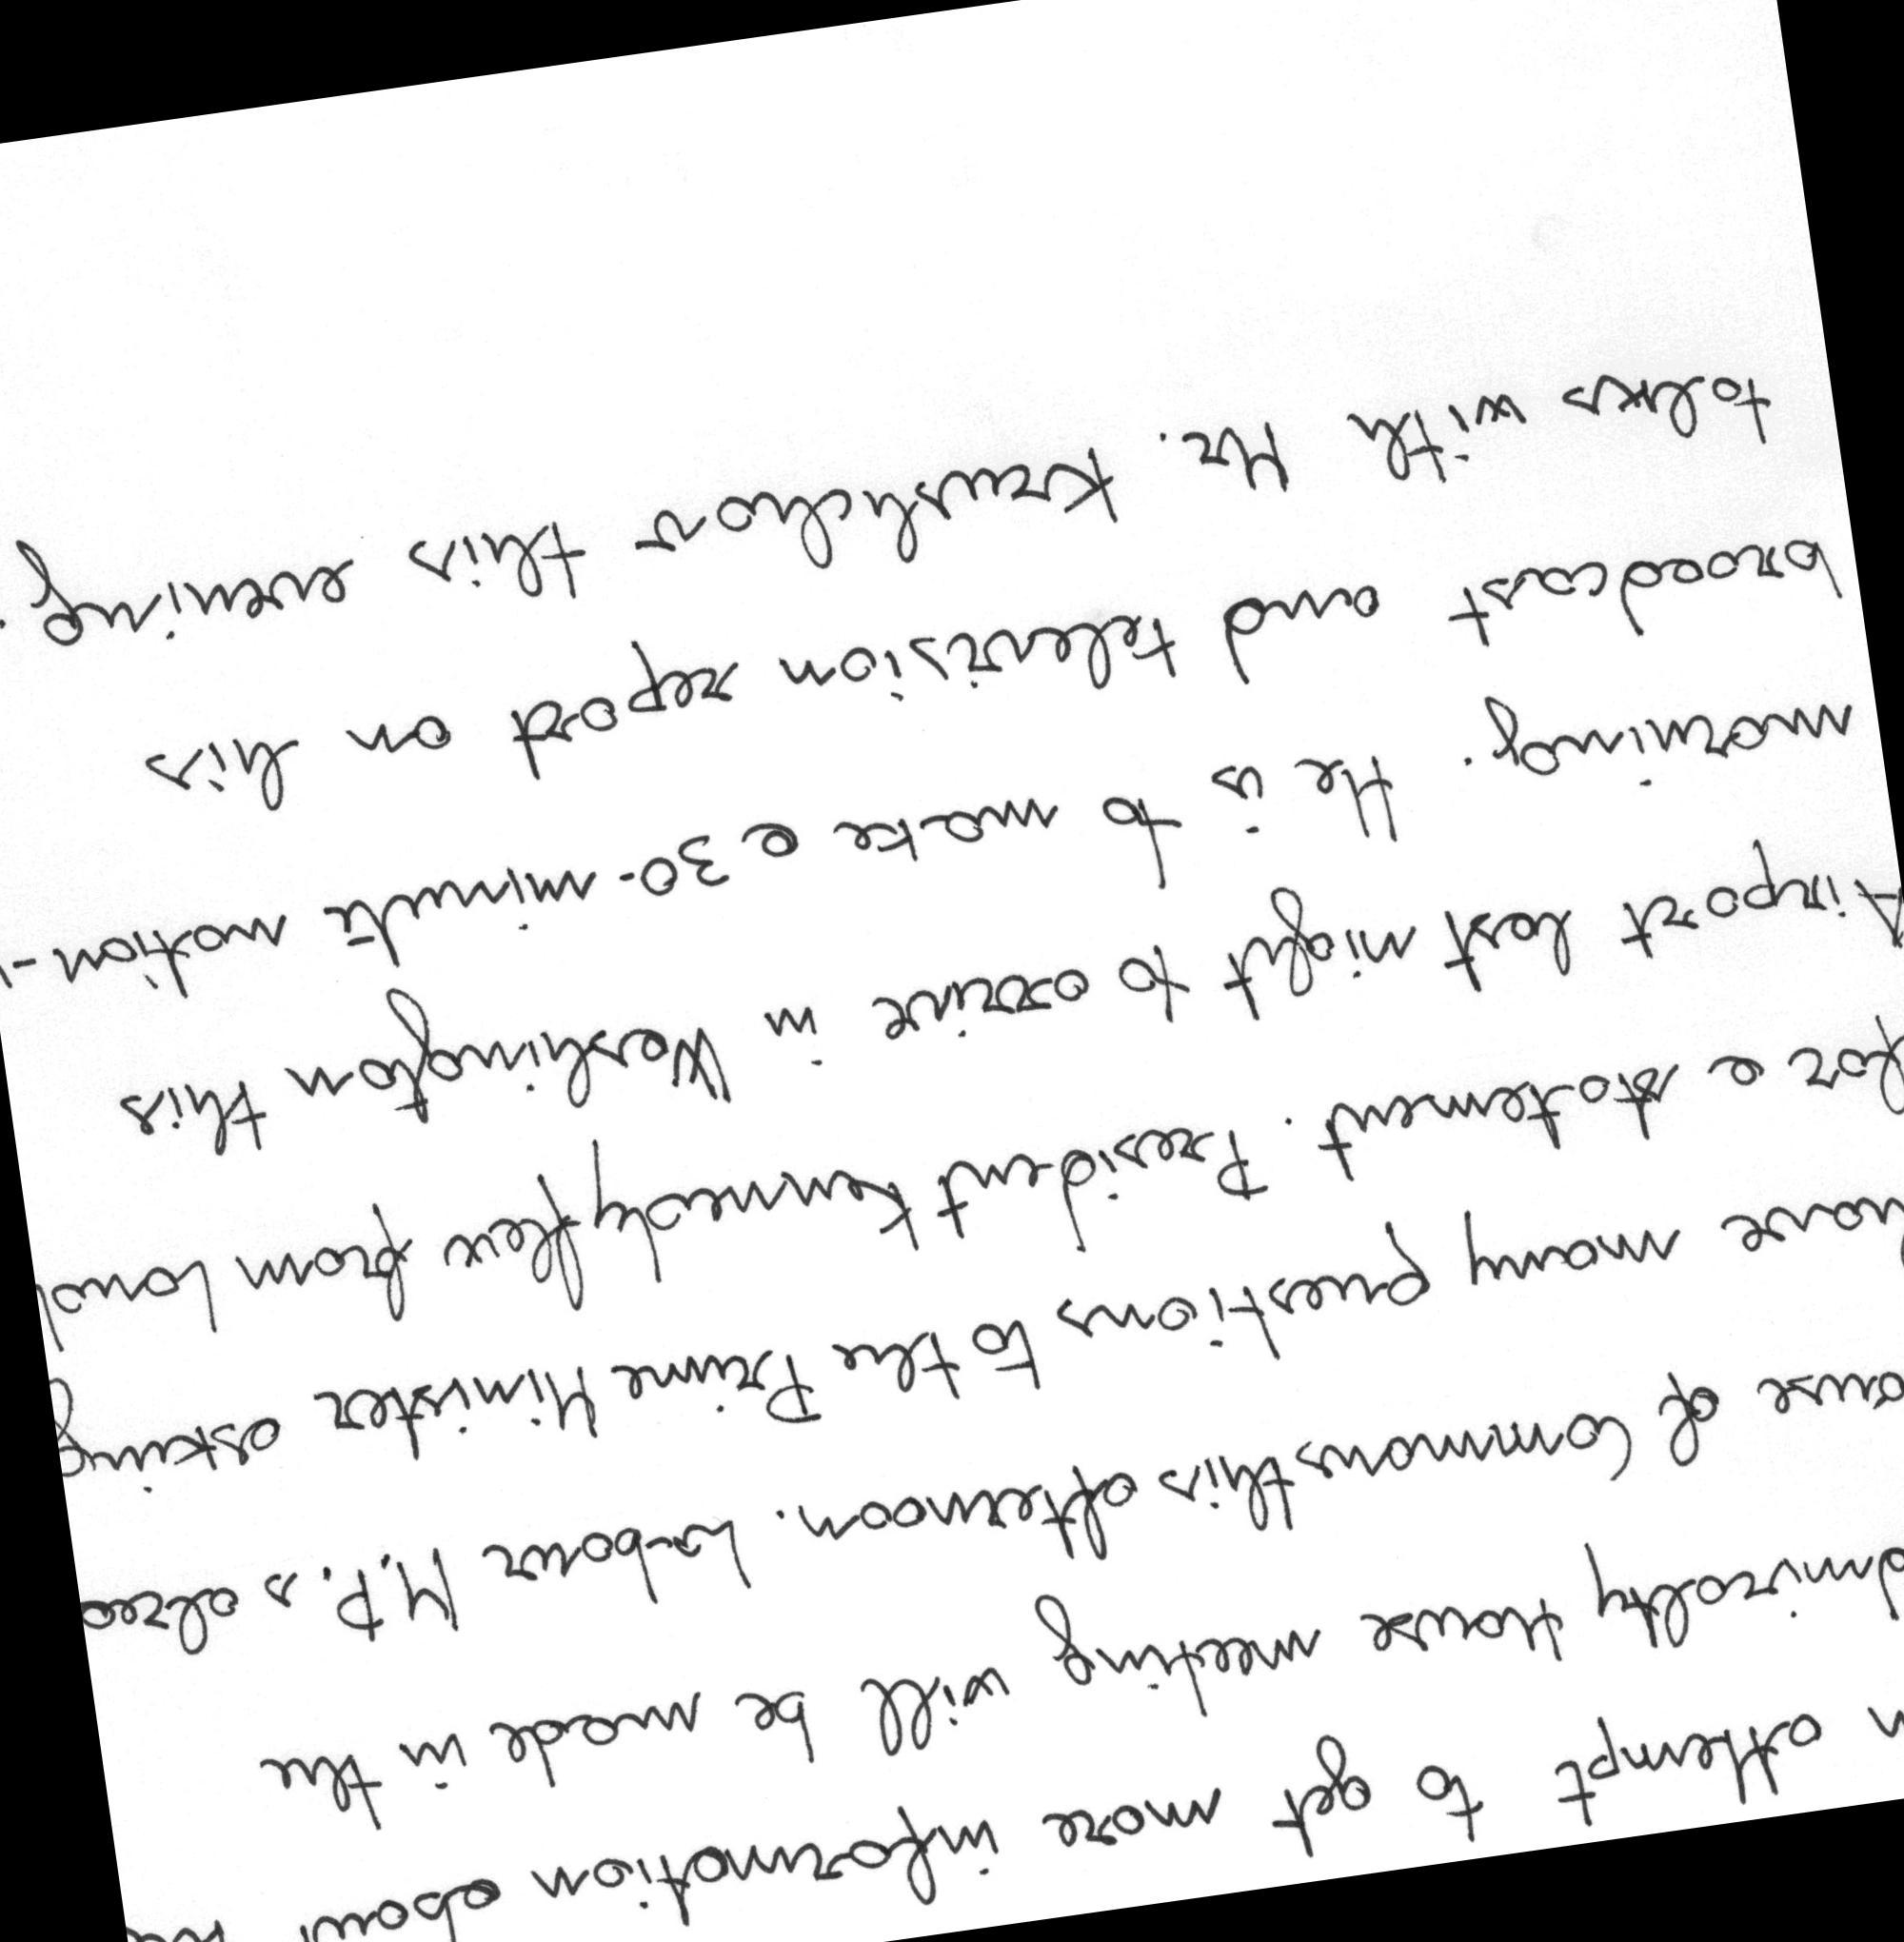 attempt to get more information about
House meeting will be made in the
of Commons this afternoon. Labour M.P.s
many questions to the Prime Minister asking
for a statement. President Kennedy flew from
Airport last night to arrive in Washington this
morning. He is to make a 30-minute nation-
broadcast and television report on his
talks with Mr. Krushchov this evening.